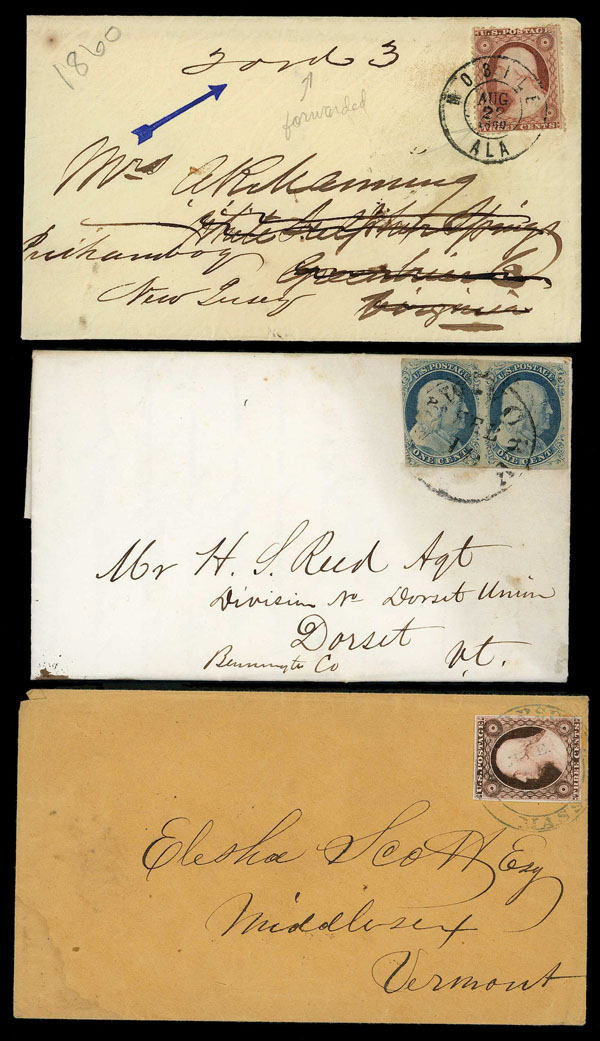 1860
Ford 3
forwarded
U.S. POSTAGE
THREE CENTS
MOBILE
AUG
22
1860
ALA
Mrs A R Manning
White Sulphur Springs
Greenbrier Co
Virginia
New Jersey
U.S. POSTAGE U.S. POSTAGE
ONE CENT ONE CENT
Mr H. S. Reed Agt
Division No Dorset Union
Dorset
Bennington Co Vt.
U.S. POSTAGE
THREE CENTS
Elisha Scott Esq
Middlesex
Vermont